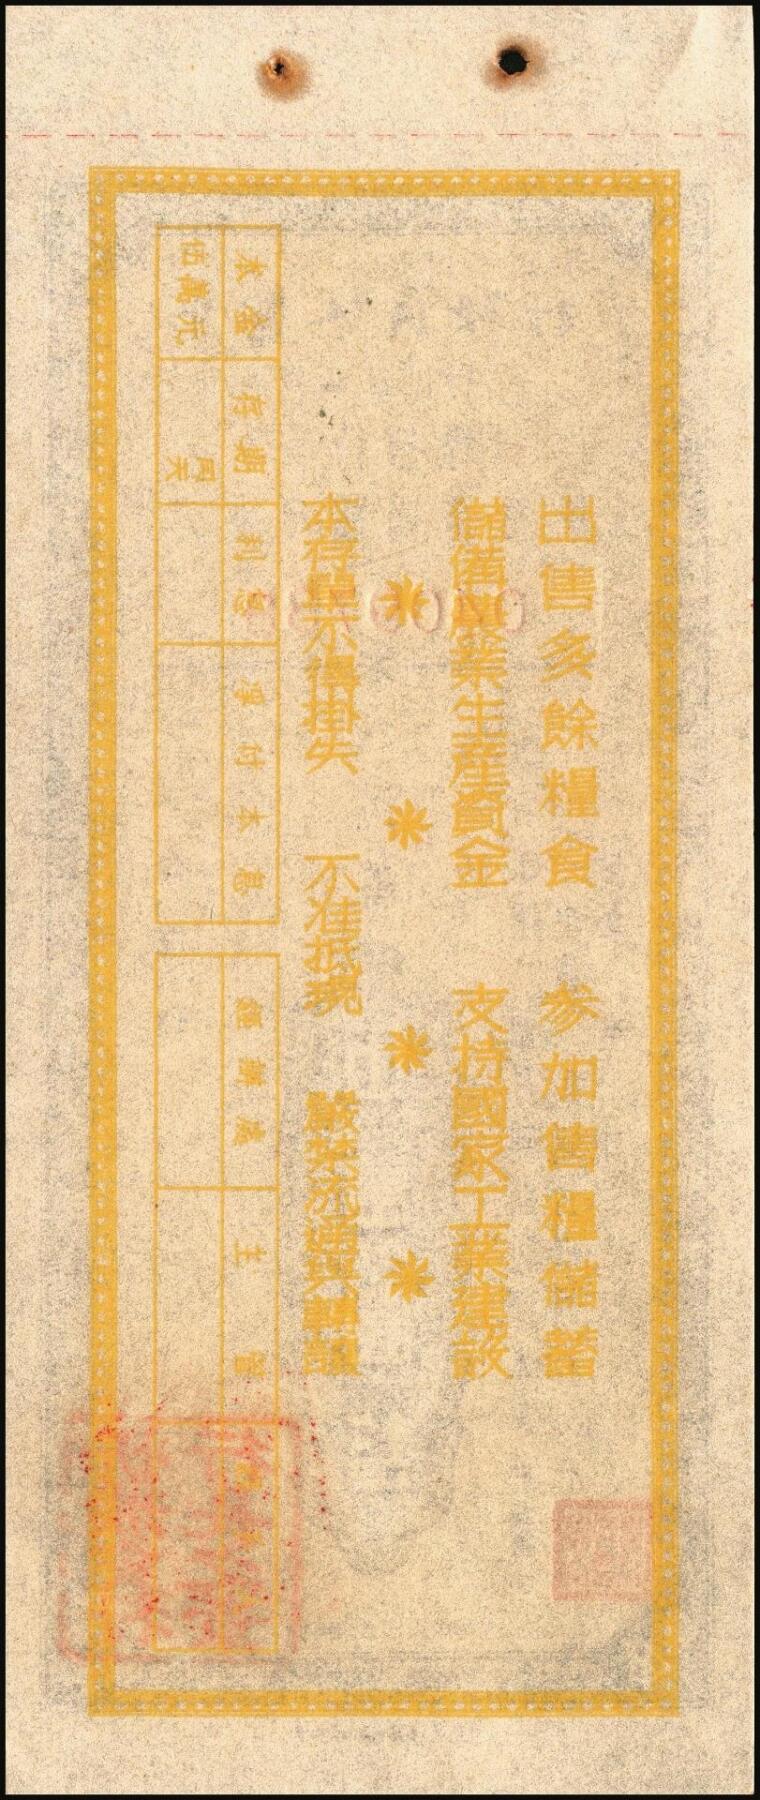 出售多餘糧食 參加售糧儲蓄
儲備農業生産資金 支持國家工業建設
本存單不得掛失 不准抵現 嚴禁流通與轉讓
本金 存期 利息 淨付本息
伍萬元 月 天
經辦處 主管